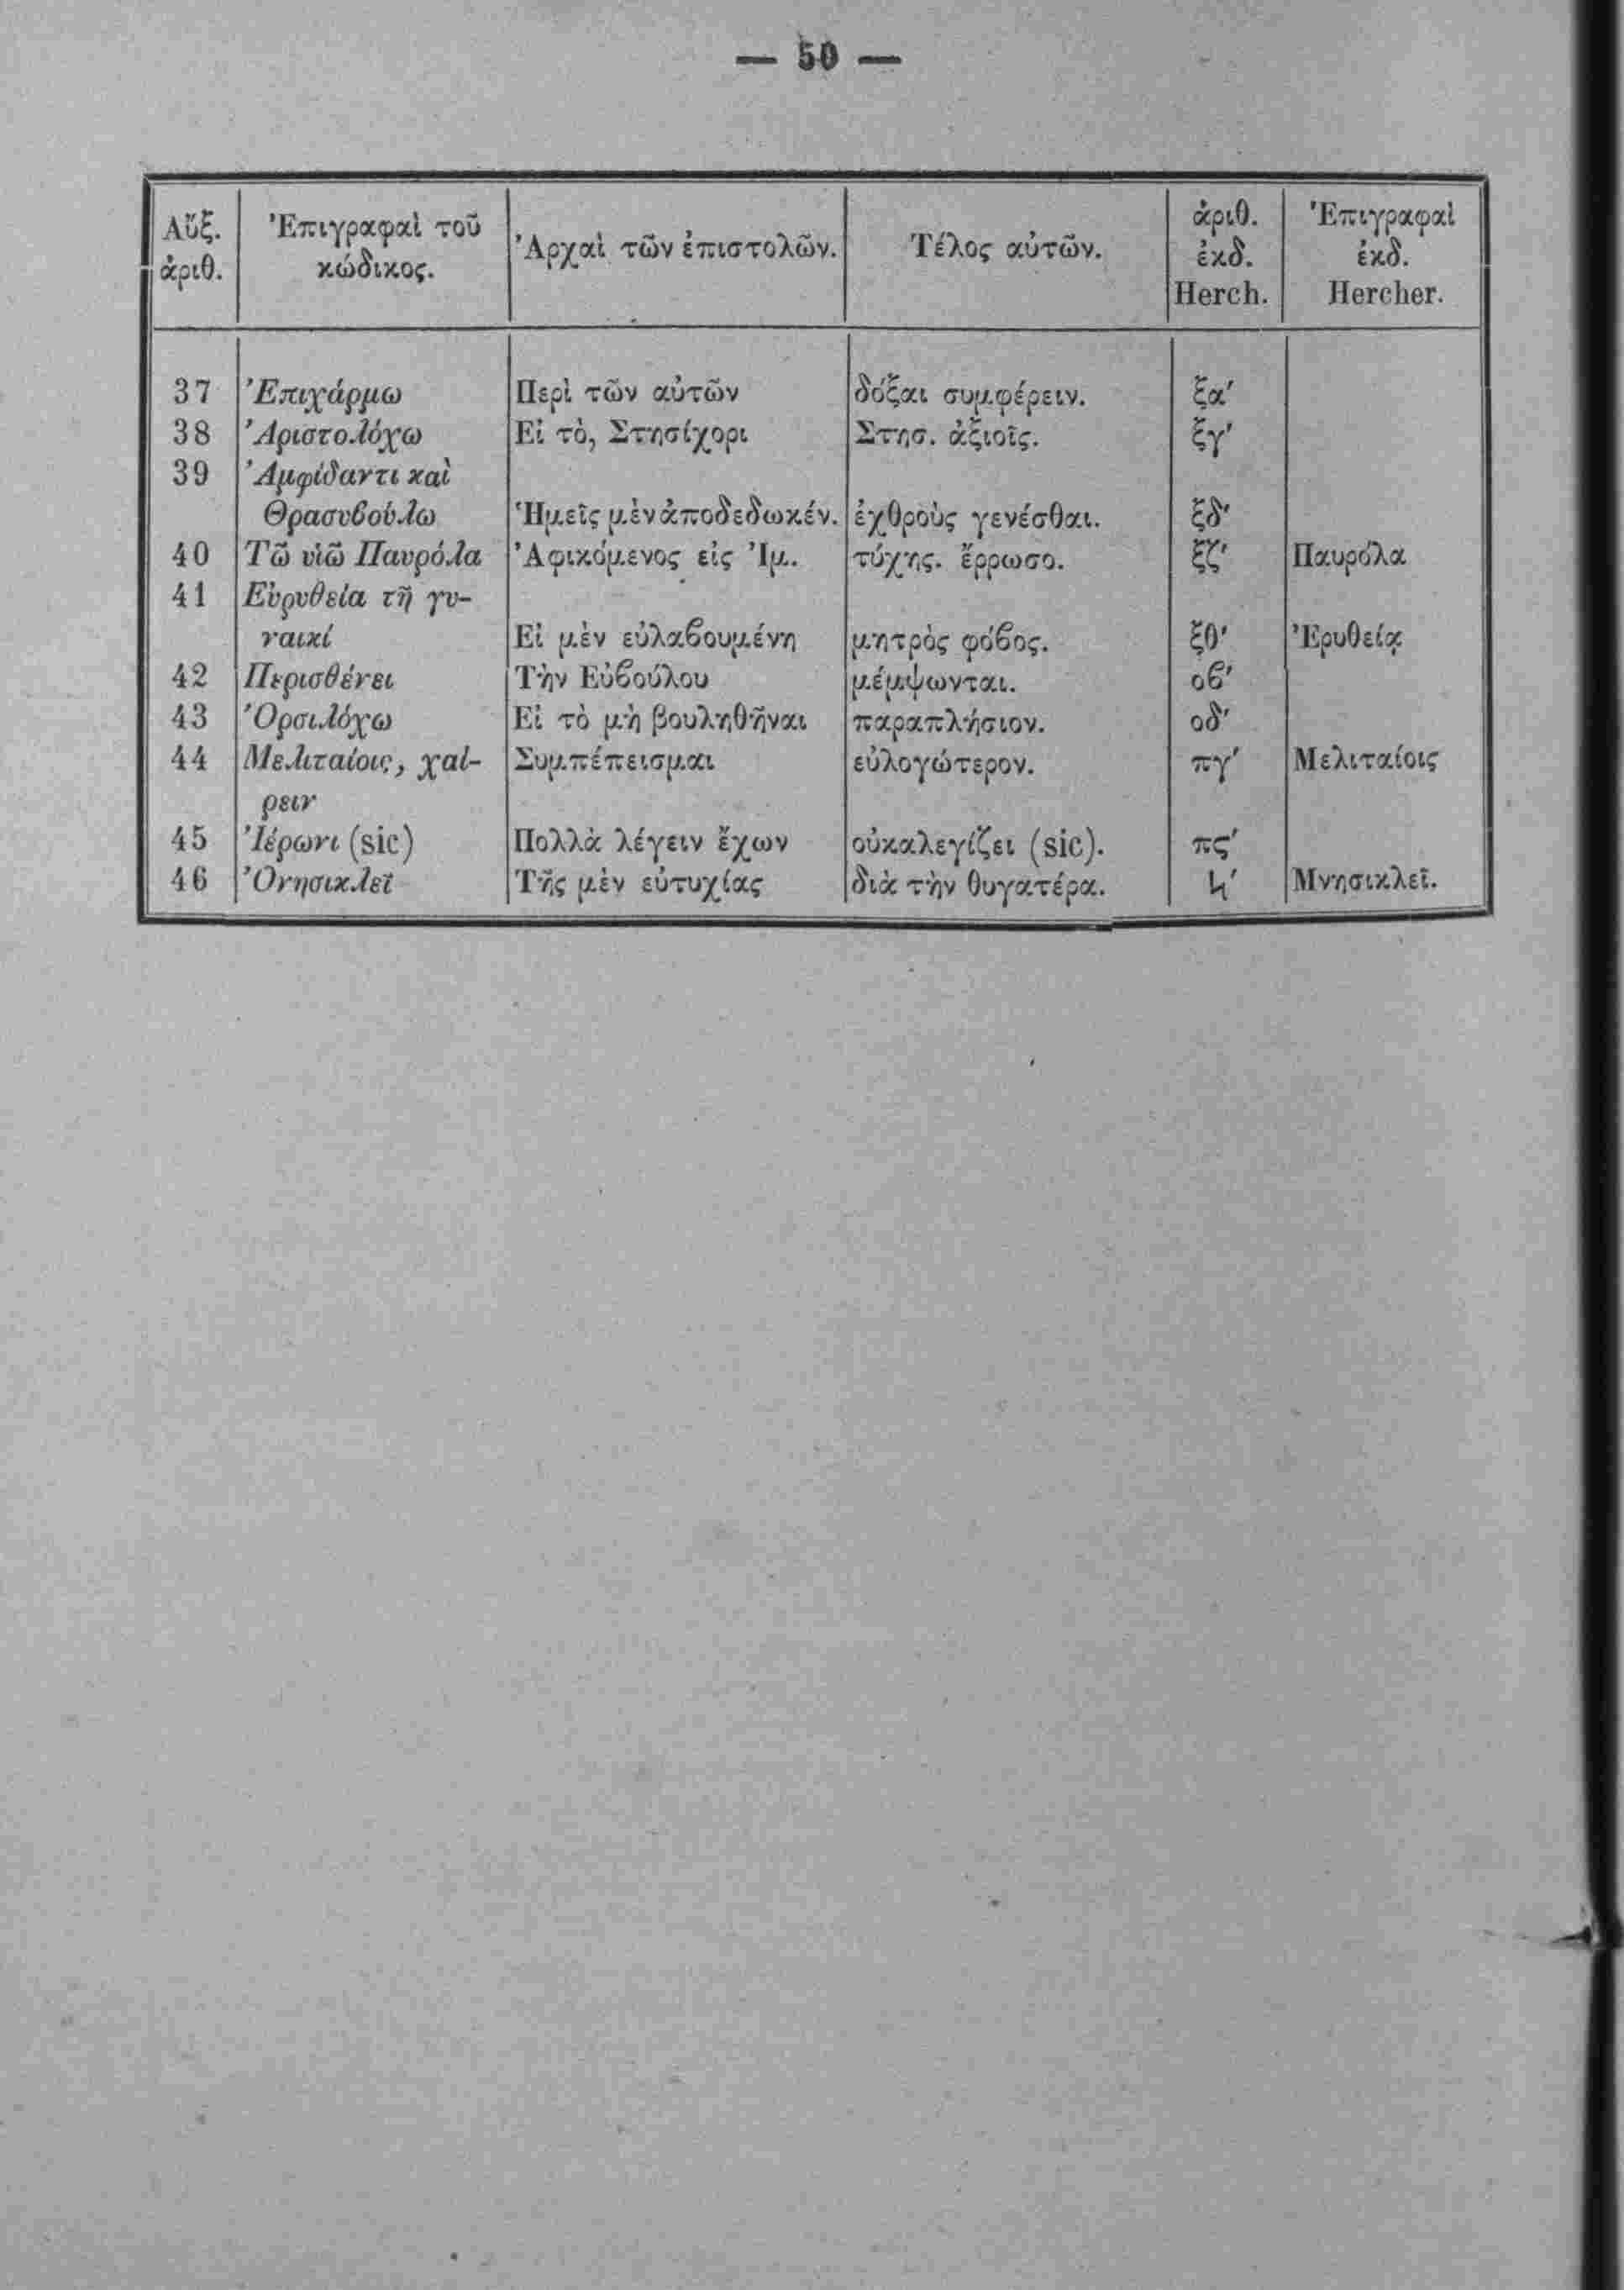 — 50 —
Αὔξ. ἀριθ. | Ἐπιγραφαὶ τοῦ κώδικος. | Ἀρχαὶ τῶν ἐπιστολῶν. | Τέλος αὐτῶν. | ἀριθ. ἐκδ. Herch. | Ἐπιγραφαὶ ἐκδ. Hercher.
37 | Ἐπιχάρμω | Περὶ τῶν αὐτῶν | δόξαι συμφέρειν. | ξα′
38 | Ἀριστολόχω | Εἰ τὸ, Στησίχορι | Στησ. ἀξιοῖς. | ξγ′
39 | Ἀμφίδαντι καὶ
Θρασυβούλω | Ἡμεῖς μὲν ἀποδεδωκέν. | ἐχθροὺς γενέσθαι. | ξδ′
40 | Τῶ υἱῶ Παυρόλα | Ἀφικόμενος εἰς Ἰμ. | τύχης. ἔρρωσο. | ξζ′ | Παυρόλα
41 | Εὐρυθεία τῆ γυ-
ναικί | Εἰ μὲν εὐλαβουμένη | μητρὸς φόβος. | ξθ′ | Ἐρυθείᾳ
42 | Περισθένει | Τὴν Εὐβούλου | μέμψωνται. | οβ′
43 | Ὀρσιλόχω | Εἰ τὸ μὴ βουληθῆναι | παραπλήσιον. | οδ′
44 | Μελιταίοις, χαί- | Συμπέπεισμαι | εὐλογώτερον. | πγ′ | Μελιταίοις
ρειν
45 | Ἰέρωνι (sic) | Πολλὰ λέγειν ἔχων | οὐκαλεγίζει (sic). | πς′
46 | Ὀνησικλεῖ | Τῆς μὲν εὐτυχίας | διὰ τὴν θυγατέρα. | ϟ′ | Μνησικλεῖ.